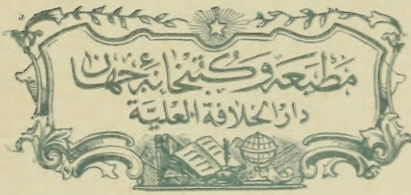 مطبعه و كتبخانهٔ جهان
دار الخلافة العلية